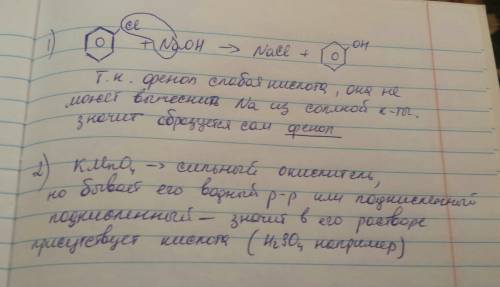 1) Cl + NaOH → NaCl + OH
Т.к. фенол слабая кислота, она не
может вытеснить Na из соляной к-ты.
значит образуется сам фенол
2) KMnO₄ → сильный окислитель,
но бывает его водный р-р или подкисленный
подкисленный – значит в его растворе
присутствует кислота (H₂SO₄ например)